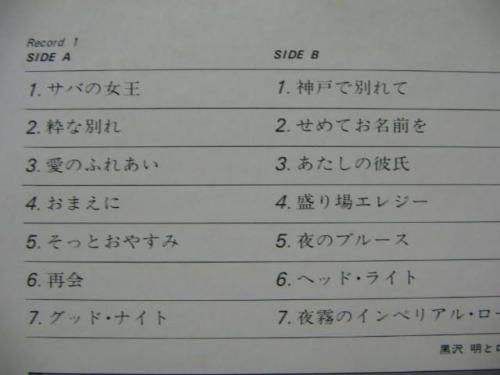 Record 1
SIDE A
1. サバの女王
2. 粋な別れ
3. 愛のふれあい
4. おまえに
5. そっとおやすみ
6. 再会
7. グッド・ナイト
SIDE B
1. 神戸で別れて
2. せめてお名前を
3. あたしの彼氏
4. 盛り場エレジー
5. 夜のブルース
6. ヘッド・ライト
7. 夜霧のインペリアル・ロー
黒沢 明と